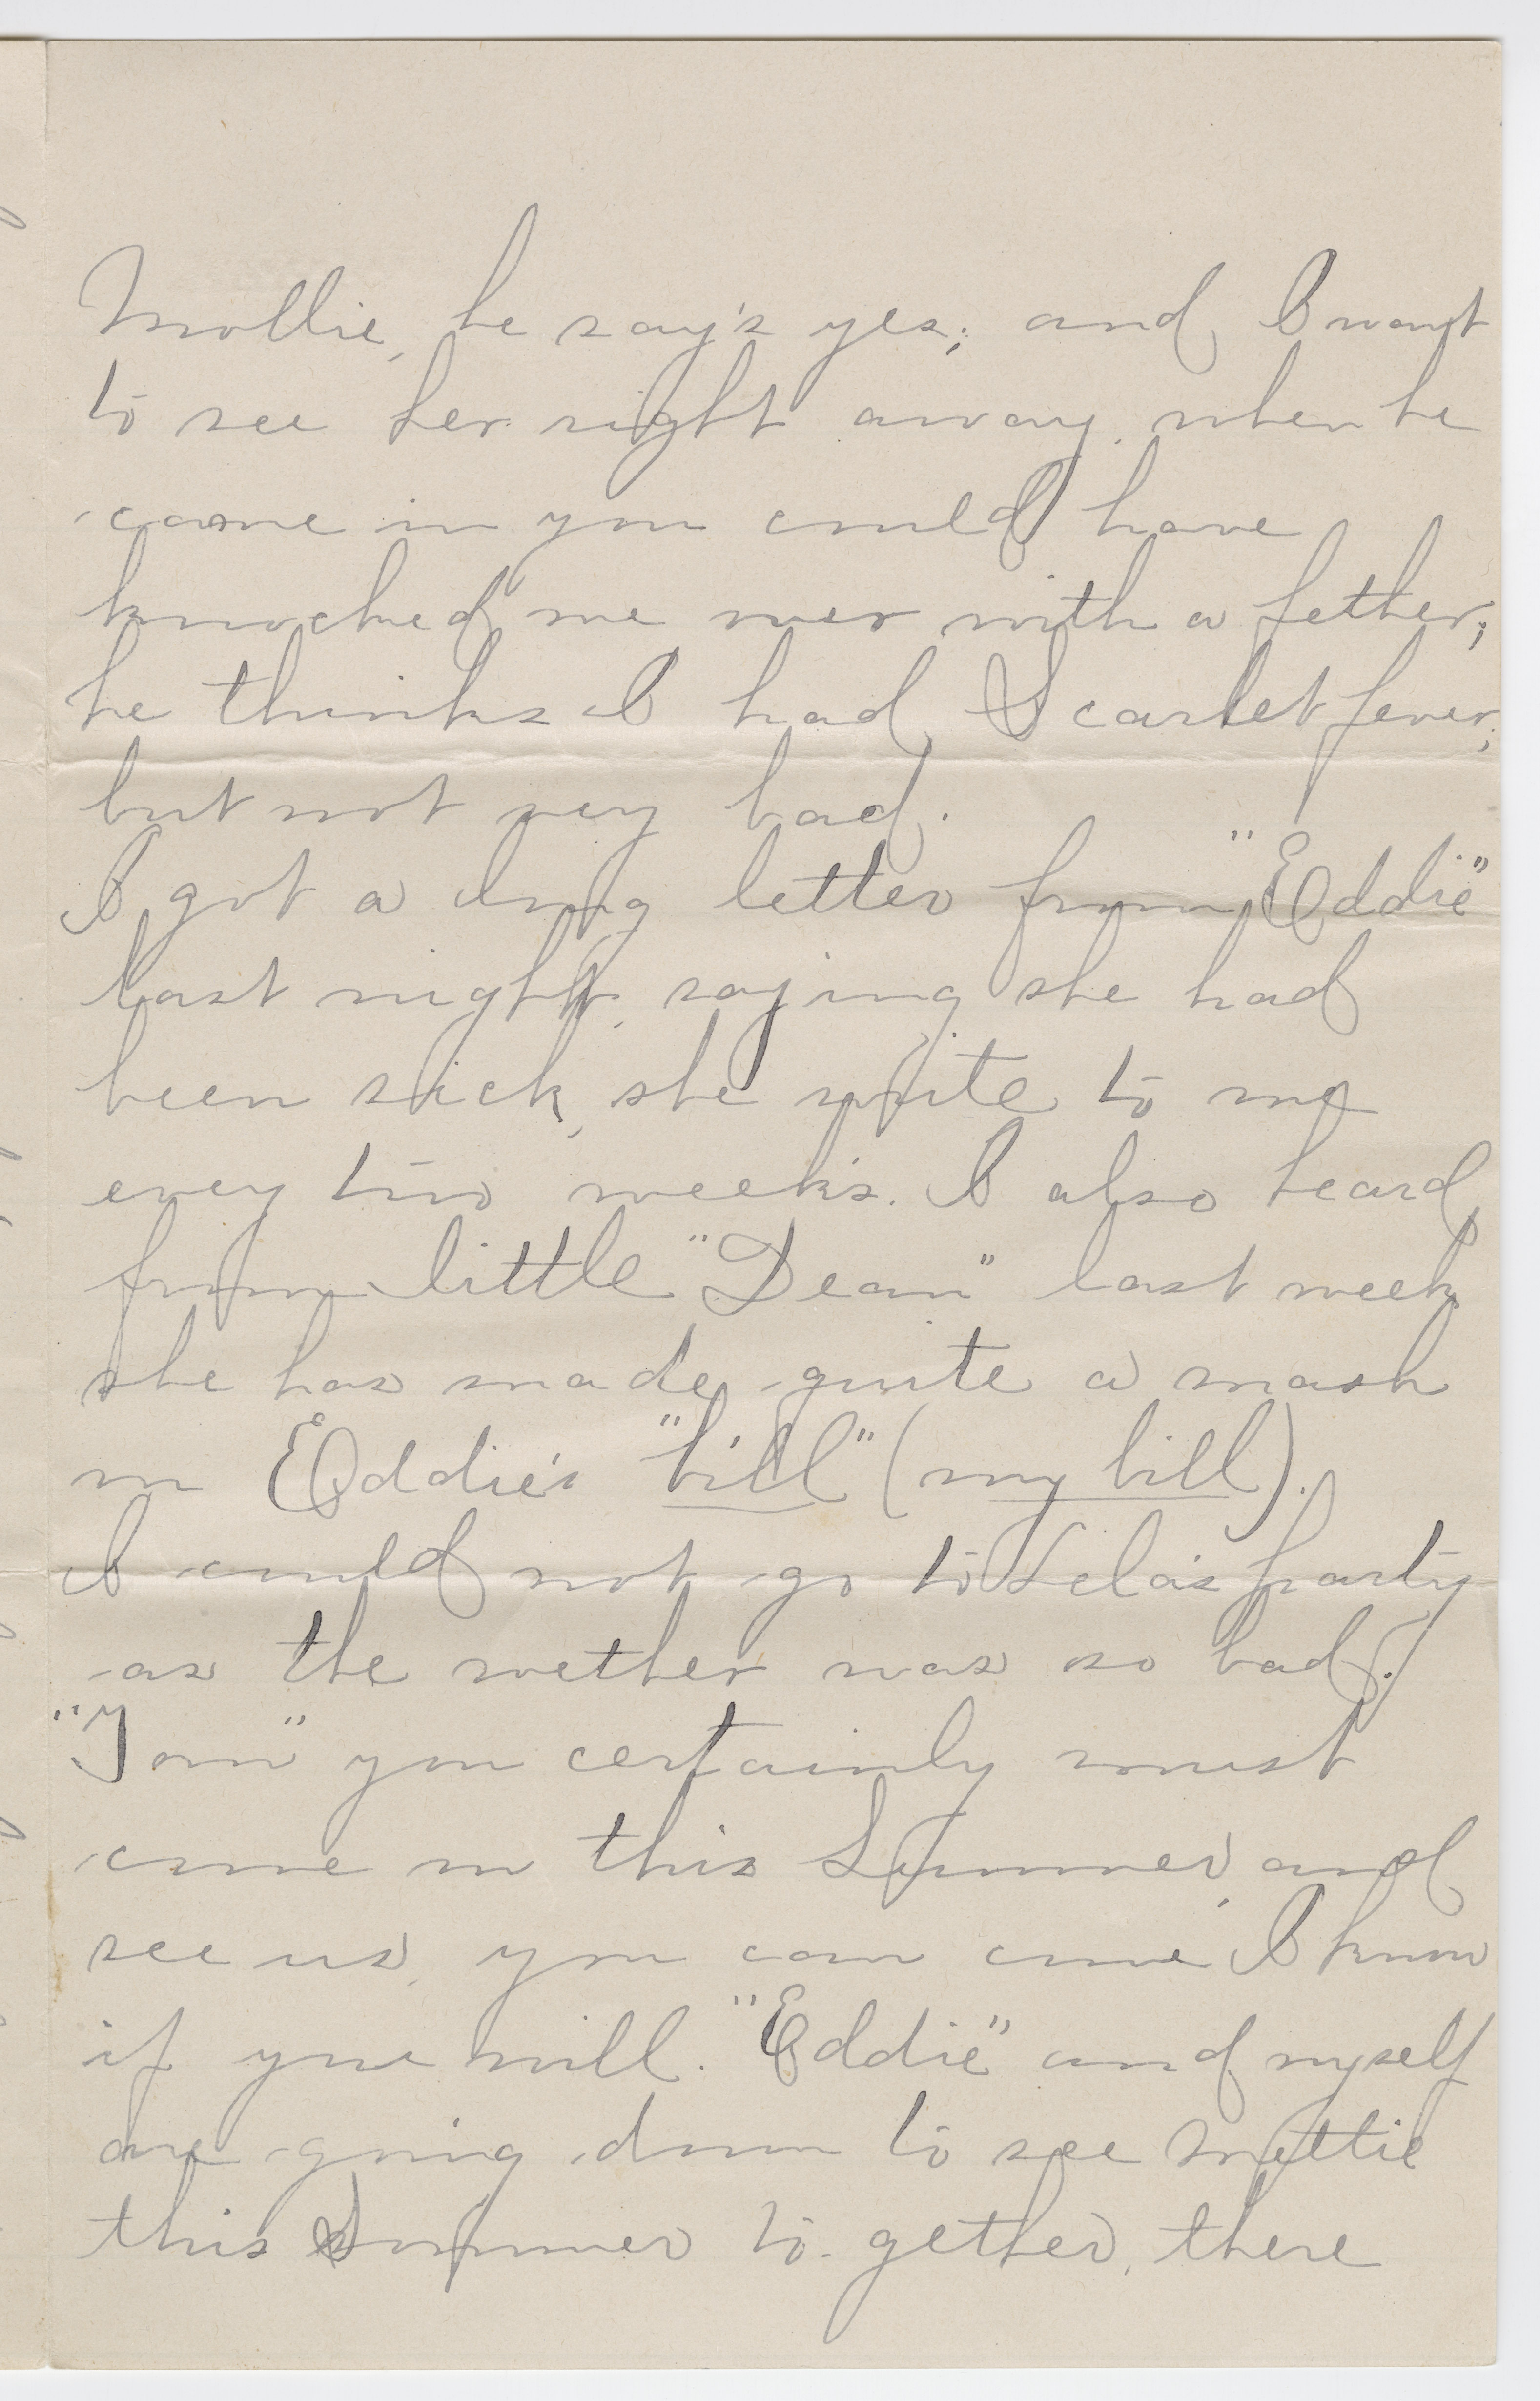 Mollie, he say's yes; and I want
to see her right away. when he
came in you could have
knocked me over with a fether;
he thinks I had Scarlet fever;
but not very bad.
I got a long letter from "Eddie"
last night, saying she had
been sick, she write to me
evey two week's. I also heard
from little "Dean" last week
she has made quite a mash
on Eddie's "bill" (my bill).
I could not go to Lela's party
as the wether was so bad.
"Tom" you certainly must
come on this Summer, and
see us, you can come I know
if you will. "Eddie" and myself
are going down to see Mettie
this Summer to-gether, there